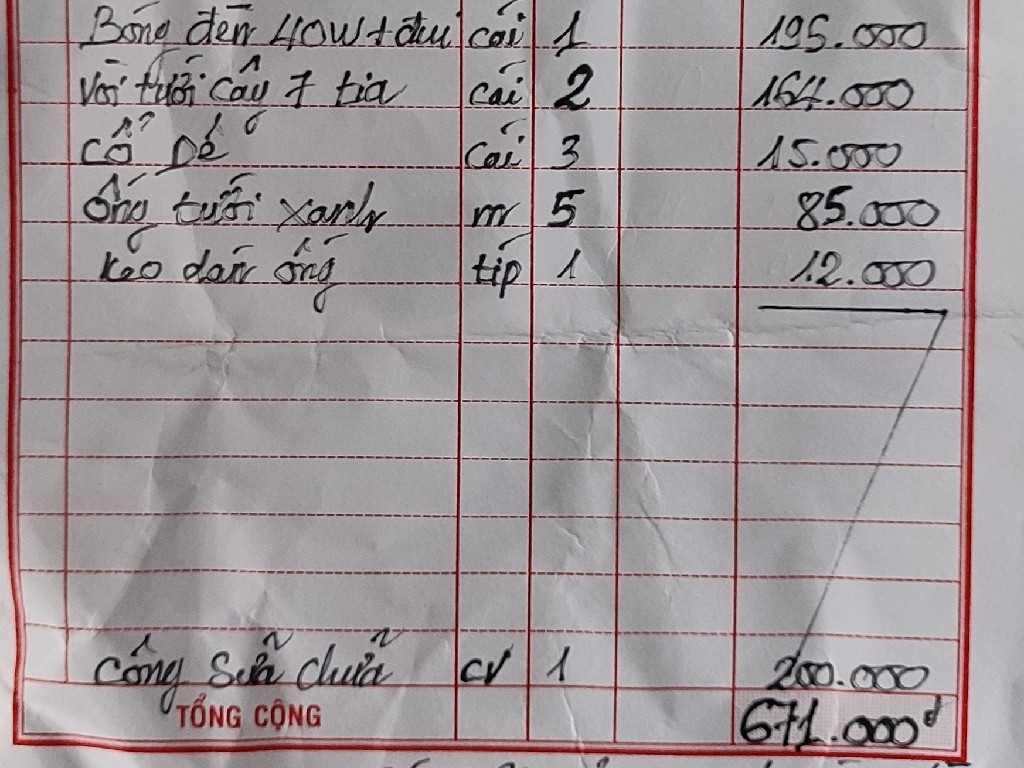 Bóng đèn 40W+đui cái 1 195.000
Vòi tưới cây 7 tia cái 2 164.000
Cổ Dê cái 3 15.000
ống tưới xanh m 5 85.000
Keo dán ống típ 1 12.000
Công Sửa chữa cv 1 200.000
TỔNG CỘNG 671.000đ